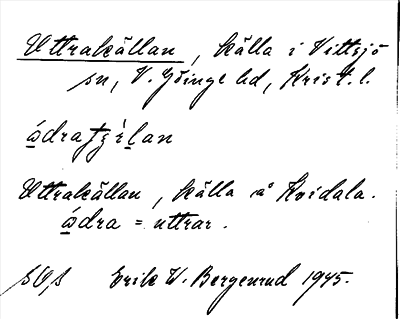 Uttrakällan, källa i Vittsjö
sn, V. Göinge hd, Krist. l.
ådratʃélan
Uttrakällan, källa å Kvidala.
ådra = uttrar.
Erik W. Bergenrud 1945.